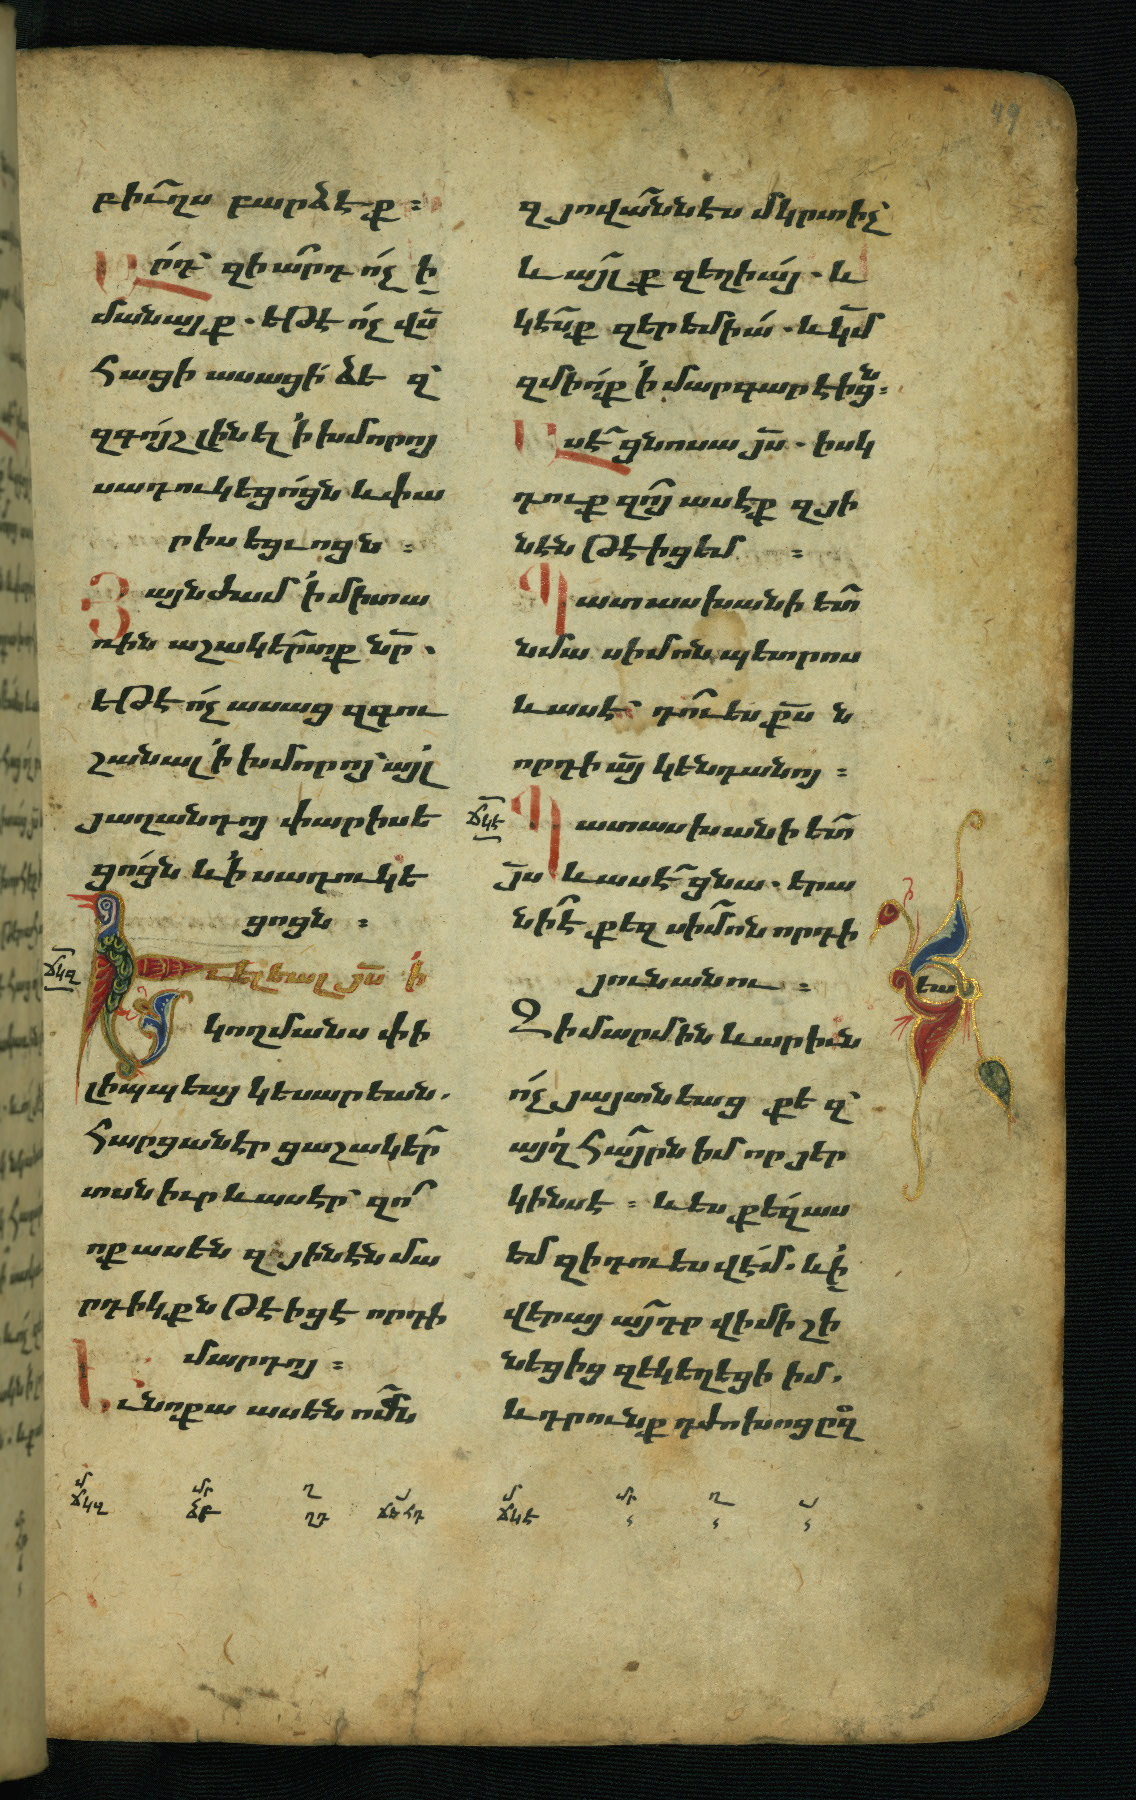 49
բիւղս բարձէք ։
Որդ՝ զիա՞րդ ո՛չ ի
մանայք . եԹէ ո՛չ վս
հացի ասացի ձե զ՝
զգո՛յշ լինել ՛ի խմորոյ
սադուկեցո՛ցն և փա
րիսեցւոցն ։
Յայնժամ ՛ի միտա
ռին աշակերտք նր .
եԹէ ո՛չ ասաց զգու
շանալ ՛ի խմորոյ՝ այլ
յաղանդոյ փարիսե
ցո՛ցն և ՛ի սադուկե
ցոցն ։
ՃԿԶ
Եւ եկեալ յս ՛ի
կողմանս փի
լիպպեայ կեսարեան .
հարցանէր ցաշակեր
տսն իւր և ասէր՝ զո՞
ոք ասեն զ յինէն մա
րդիկքն Թէ իցէ որդի
մարդոյ ։
Ւ նոքա ասեն ոմն
զ յովաննէս մկրտիչ՝
և այլք զեղիա՛յ . և
կէսք զերեմիա՛ . և կմ
զմիո՛ք ՛ի մարգարէիցն ։
Ասէ ցնոսա յս . իսկ
դուք զո՞յ ասէք զյի
նէն Թէ իցեմ ։
Պատասխանի ետ
նմա սիմոն պետրոս
և ասէ՝ դու ես քս ն
որդի այ կենդանոյ ։
ՃԿԷ
Պատասխանի ետ
յս և ասէ ցնա . երա
նի է քեզ սիմոն որդի
յունանու ։
Զի մարմին և արիւն
ո՛չ յայտնեաց քե զ՝
այղ հայրն իմ որ յեր
կինսէ ։ և ես քե՛զ աս
եմ զի դու ես վէմ . և ՛ի
վերայ այդր վիմի շի
նեցից զեկեղեցի իմ .
և դրունք դժոխոց ըզ
եա
մ ՃԿԶ մր ՁԲ ղ ՂԴ
մ ՃԿԷ մր ղ